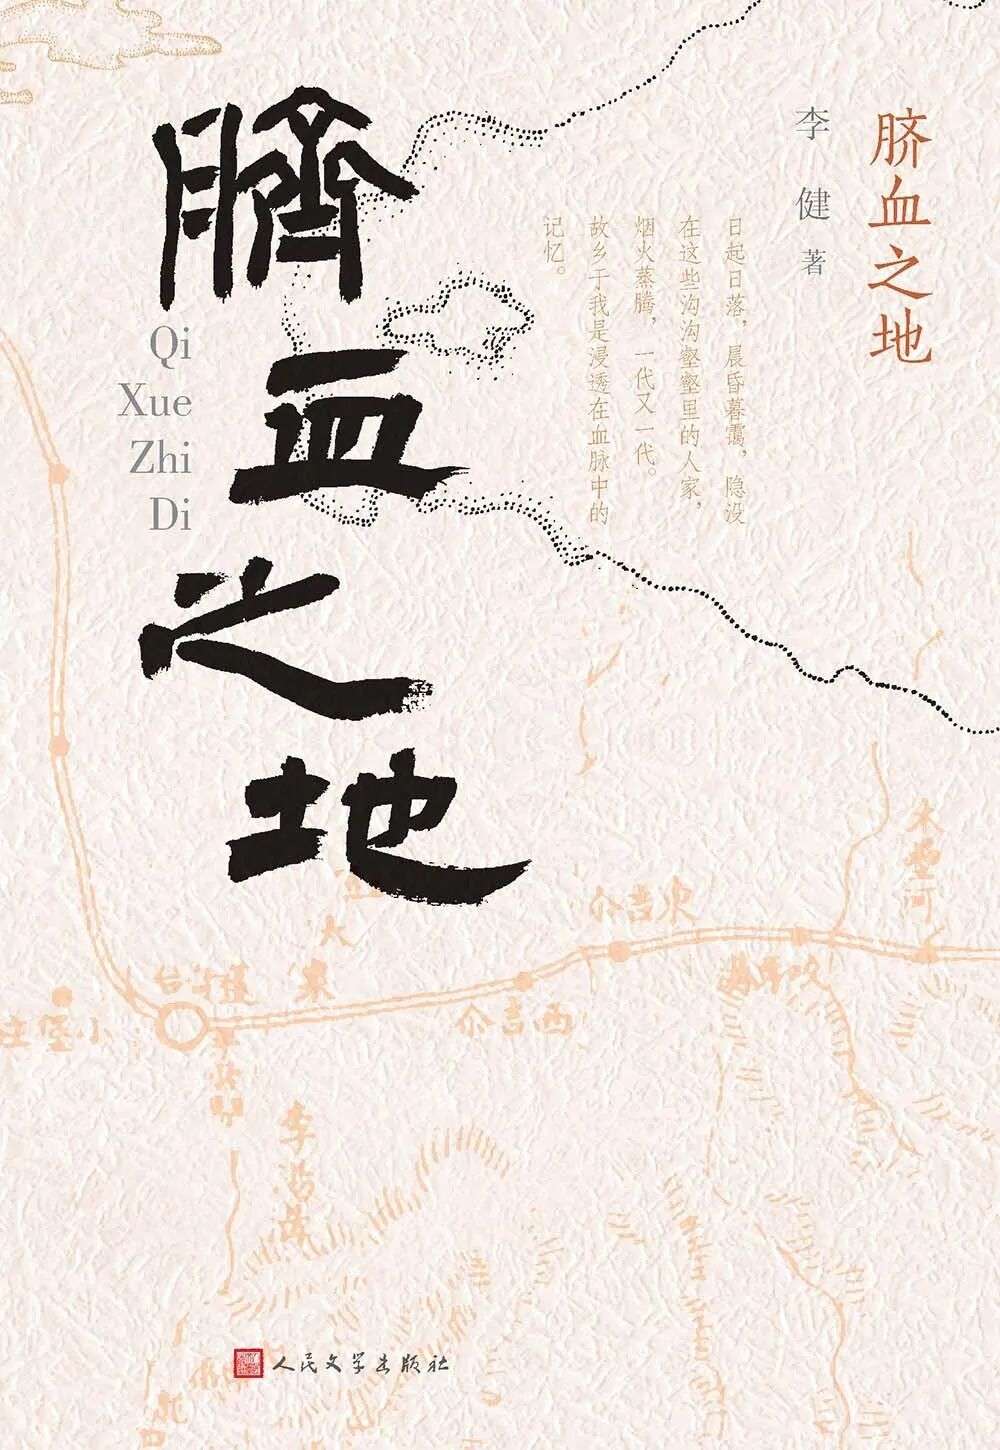 臍血之地
Qi
Xue
Zhi
Di
脐血之地
李健 著
日起日落，晨昏暮霭，隐没
在这些沟沟壑壑里的人家，
烟火蒸腾，一代又一代。
故乡于我是浸透在血脉中的
记忆。
西吉介
人民文学出版社